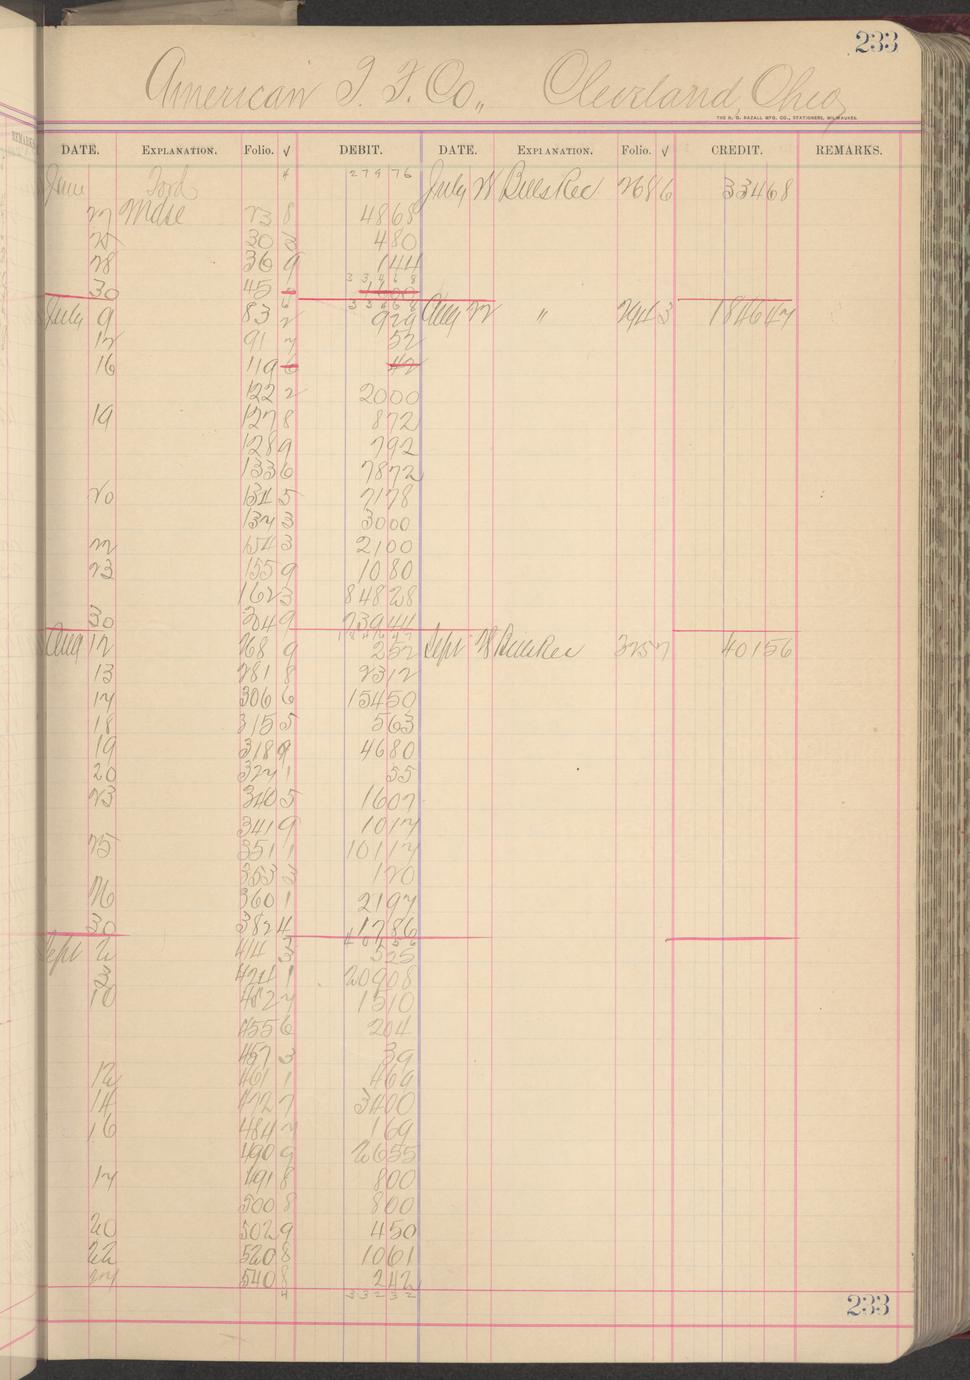 233
American T. F. Co., Cleveland, Ohio
THE H. G. RAZALL MFG. CO., STATIONERS, MILWAUKEE.
DATE. EXPLANATION. Folio. √ DEBIT. DATE. EXPLANATION. Folio. √ CREDIT. REMARKS.
June Ford 4 279 76 July Bills Rec 268 6 334 68
22 Mdse 23 8 48 68
30 4 80
28 36 9 1 44
334 68
30 45
July 9 83 2 9 29 Aug 22 " 294 3 1846 47
12 91 52
16 119 6 42
122 2 20 00
19 127 8 8 72
128 9 7 92
133 6 78 72
20 134 5 71 78
137 3 30 00
22 154 3 21 00
23 155 9 10 80
162 3 848 28
30 204 9 739 44
Aug 12 268 9 2 52 Sept Bills Rec 325 7 401 56
13 281 8 23 12
14 306 6 154 50
18 315 5 5 63
19 318 9 46 80
20 327 1 55
23 340 5 16 07
341 9 10 17
25 351 1 101 17
353 3 1 20
26 360 1 21 97
30 382 4 17 86
401 56
Sept 2 414 3 5 25
3 424 1 209 08
10 15 10
455 6 2 04
457 3 39
12 461 1 4 69
14 472 7 34 00
16 484 1 69
490 9 26 55
17 491 8 8 00
500 8 8 00
20 502 9 4 50
22 520 8 10 61
540 8 2 42
4 332 32
233